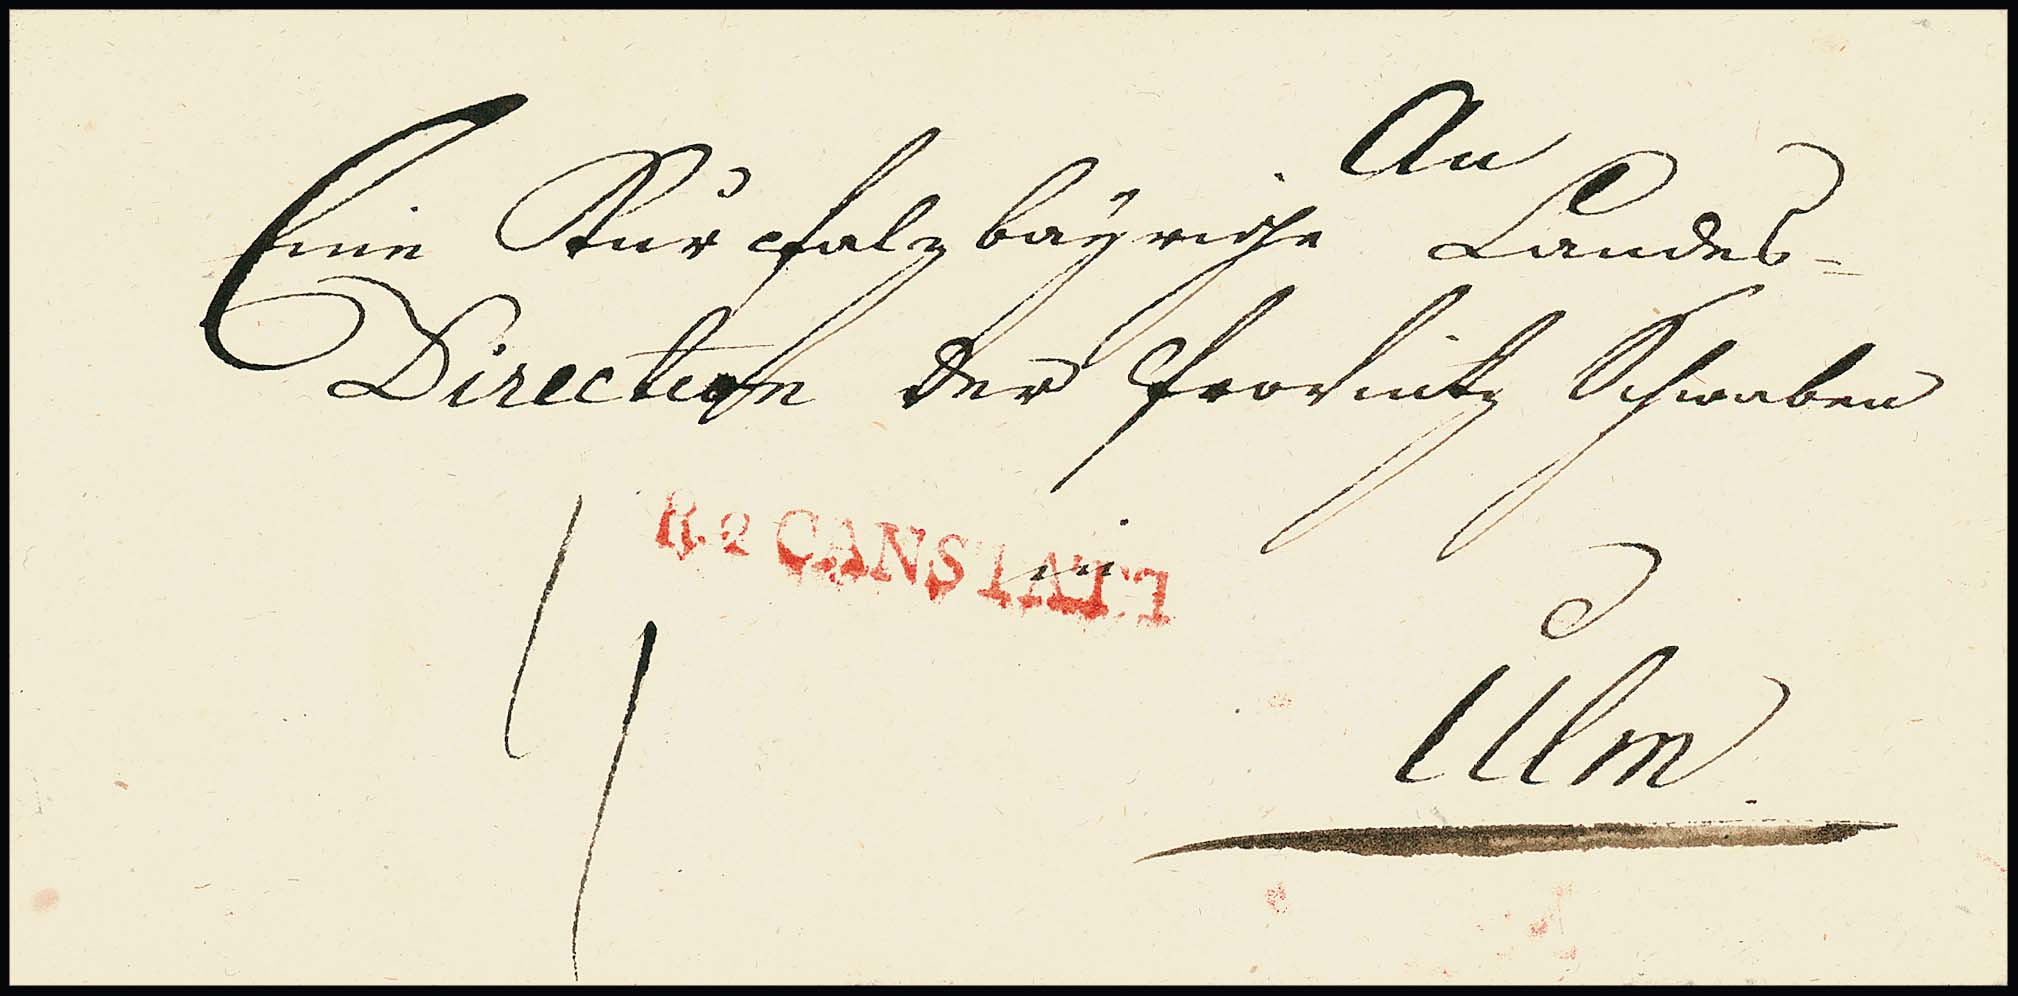 An
Eine Kur pfalz bayrische Landes-
Direction der Provintz Schwaben
R. 2 CANSTATT
in
Ulm.